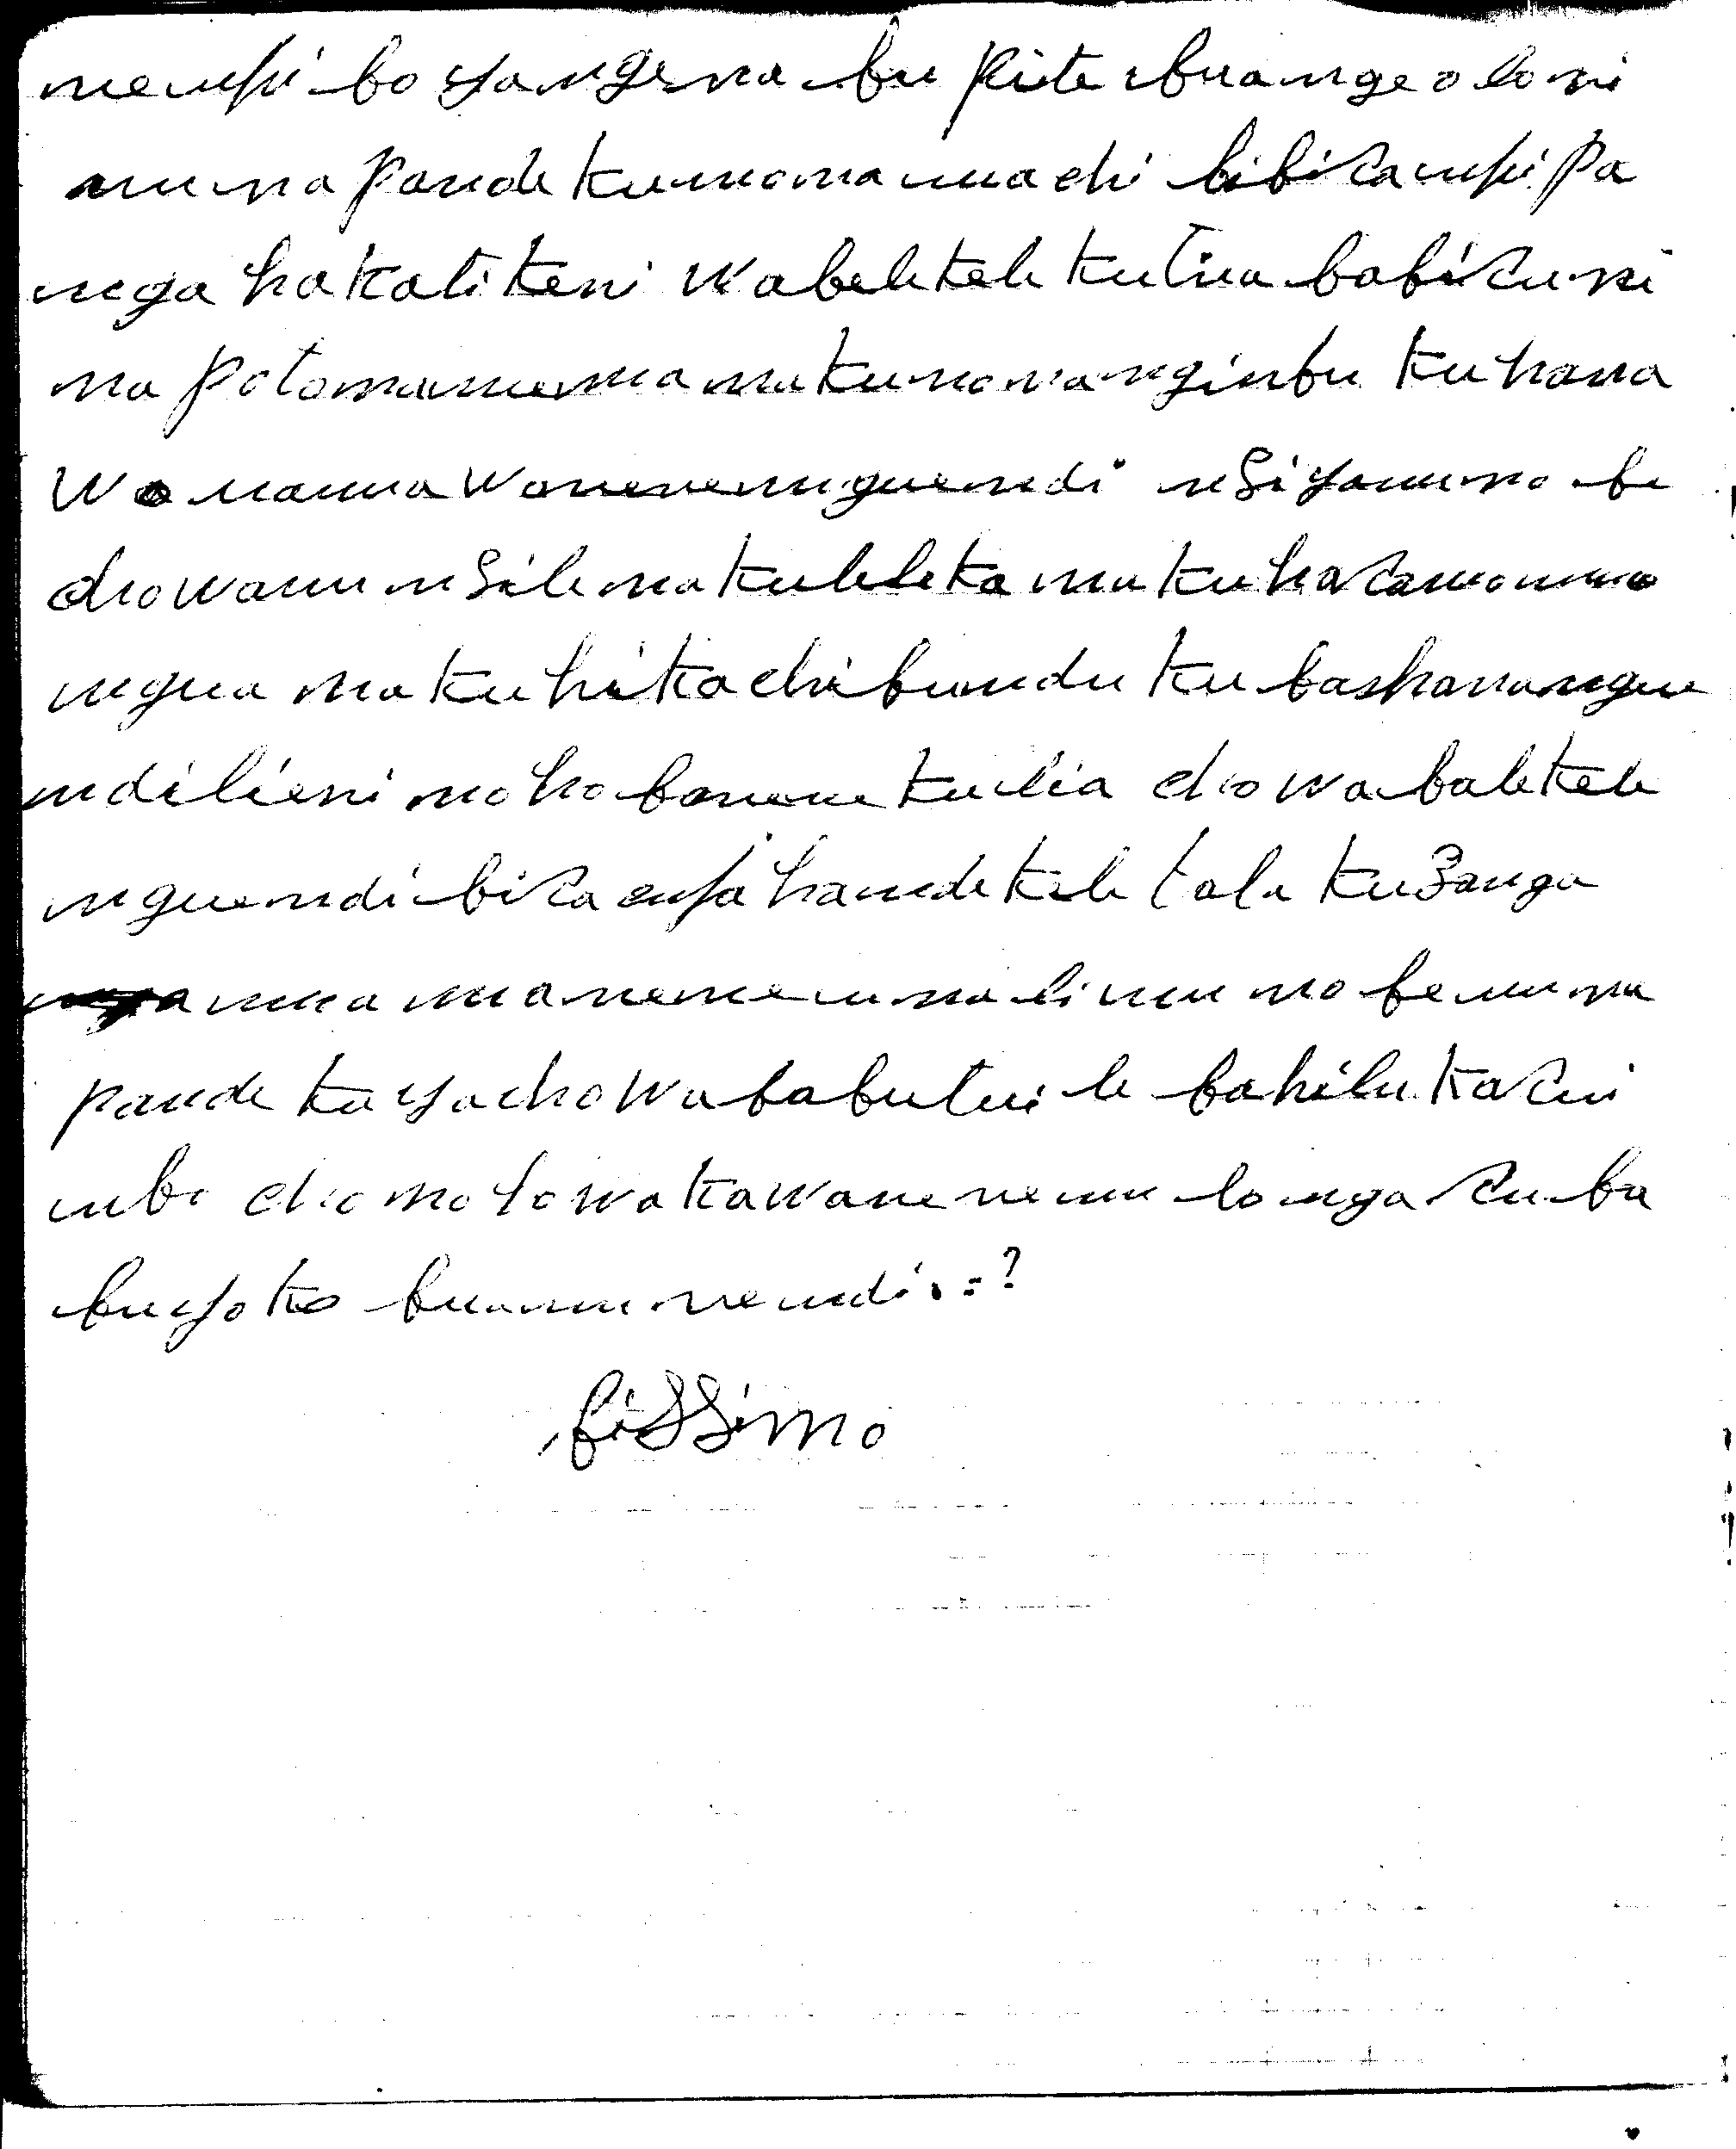 mempi bo yange na bu pite buange o loni
mu na pande ku mona machi bibiza mpi pa
nga hakatiteni wabeletele kutwa babizu ni
na potomamema na ku nona nginbu ku hana
Wa mama wanene nguendi nsi yamuno be
cho wamu nsile na kuleleka na ku haza momo
ngua na ku hika chibundu ku bashana ngue
ndilieni noho banene ku lia cho wabaletele
nguendi biza mpa handekele lala ku zanga
a mua manene muna limu mo be mu na
pande ka ya cho wa babutwile bahilukazui
mbo cho moyo wa ka wanene mu longa zu ba
bu yoko buamu nendi . = ?
fissimo